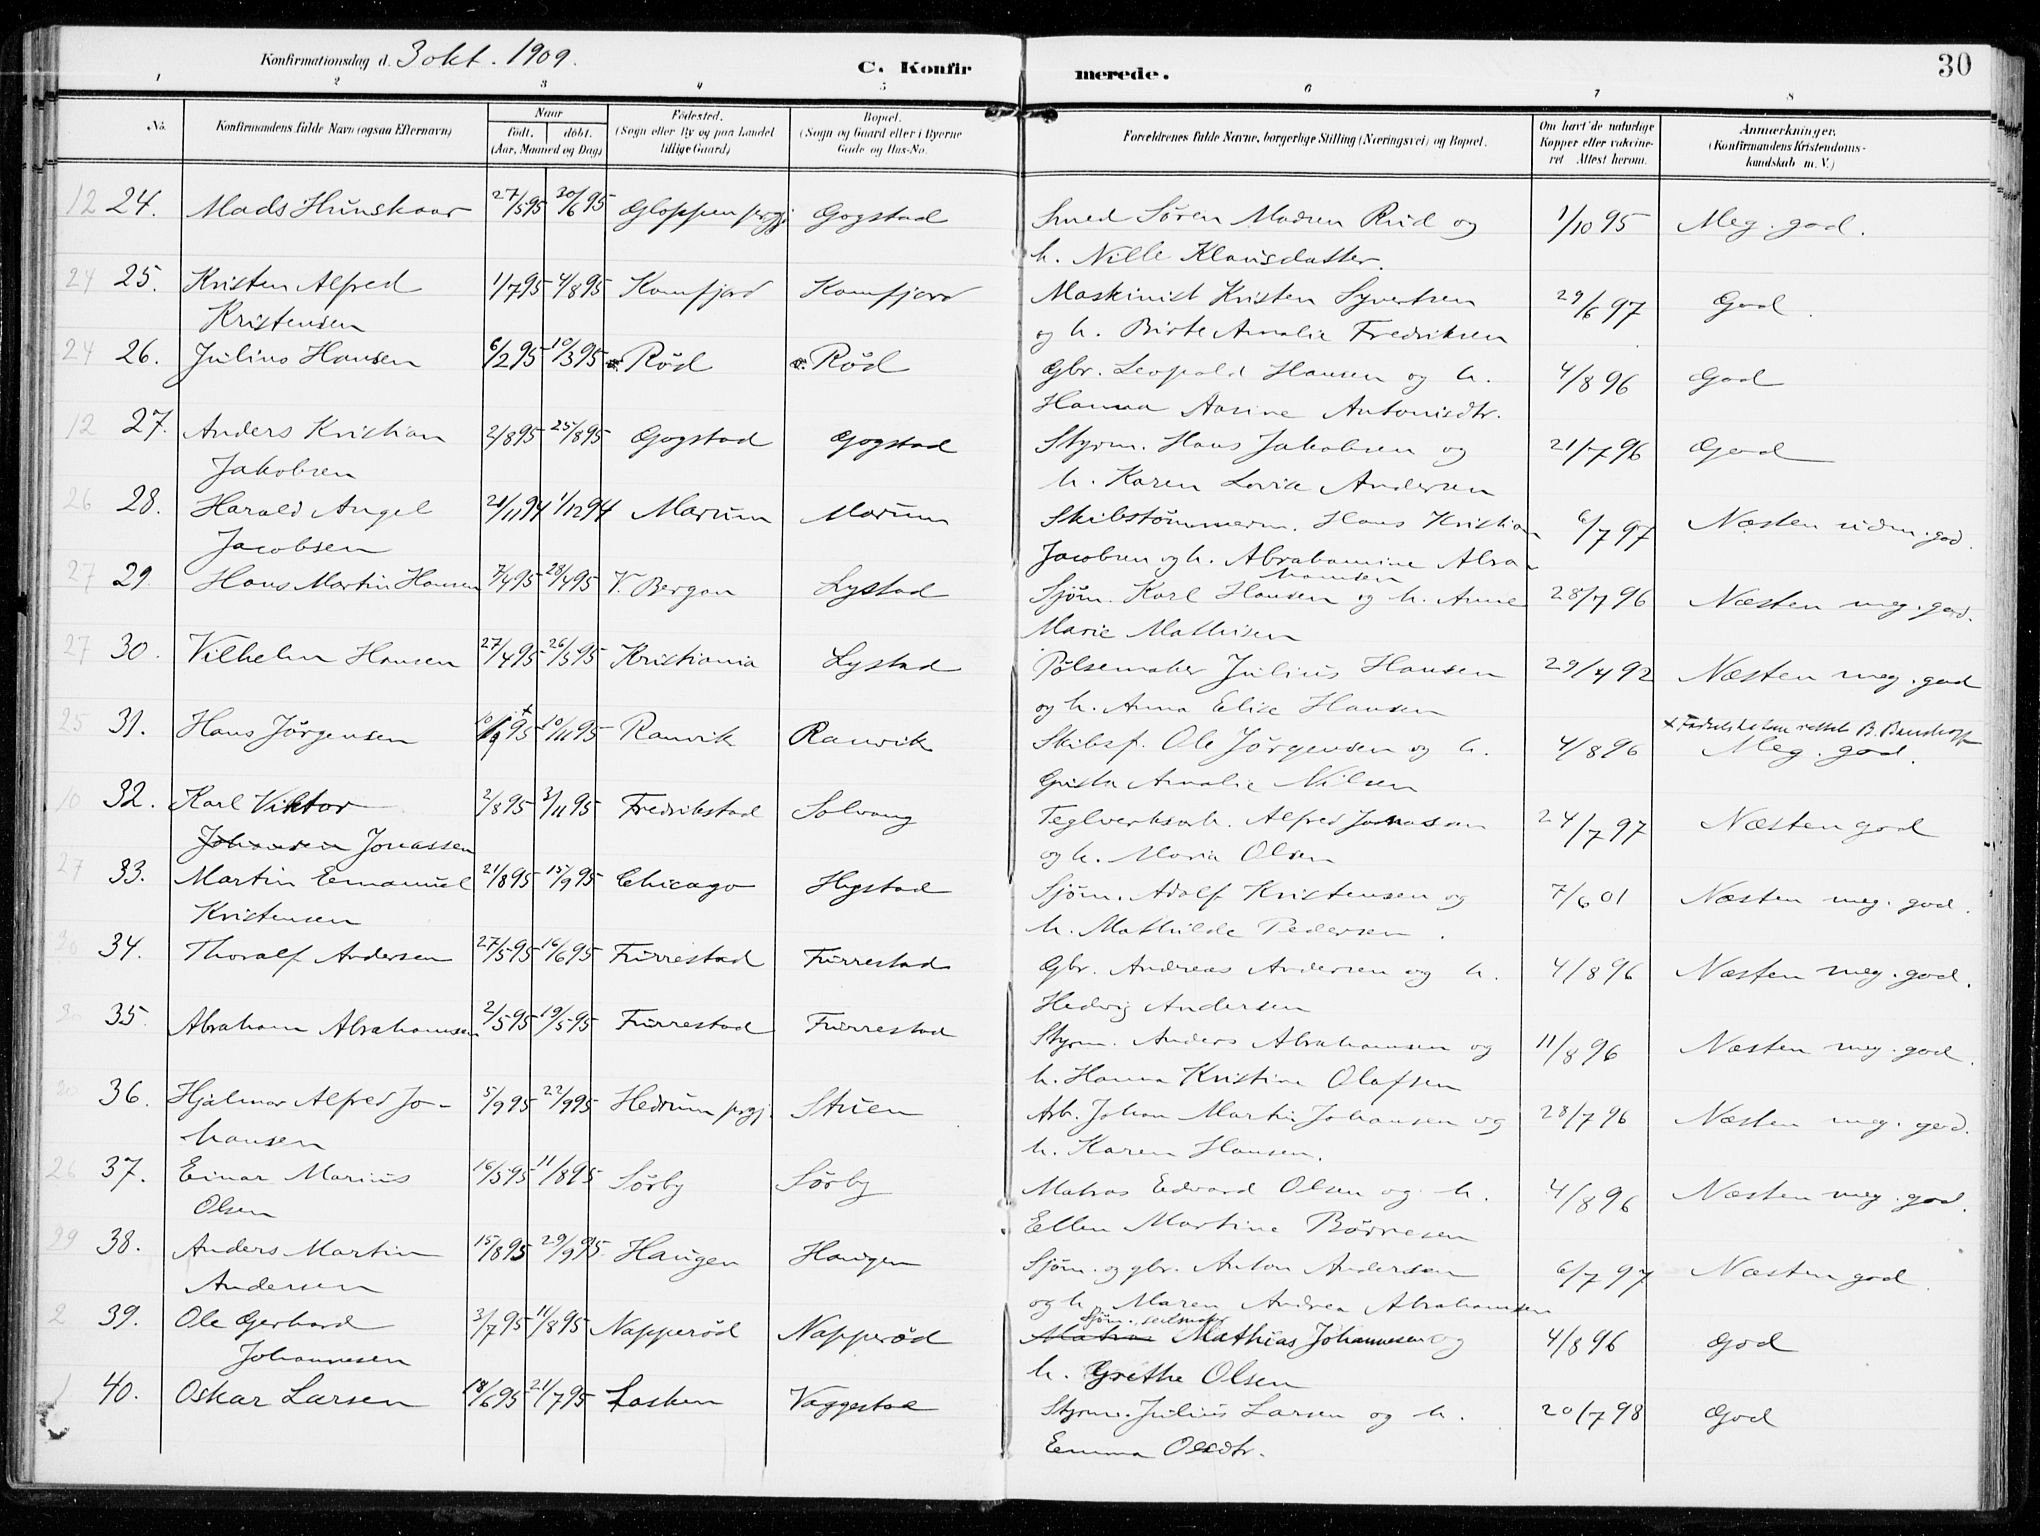 Konfirmationsdag d. 3 okt. 1909.
C. Konfir merede.
30
1 2 3 4 5 6 7 8
No. Konfirmandens fulde Navn (ogsaa Efternavn) Naar født. døbt. (Aar, Maaned og Dag) Fødested. (Sogn eller By og paa Landet tillige Gaard) Bopæl. (Sogn og Gaard eller i Byerne Gade og Hus-No. Forældrenes fulde Navne, borgerlige Stilling (Næringsvei) og Bopæl. Om havt de naturlige Kopper eller vakcineret Attest herom. Anmærkninger. (Konfirmandens Kristendomskundskab m. V.)
12 24. Mads Hunskaar 27/5 95 30/6 95 Gloppen prgj. Gogstad Smed Søren Madsen Rud og 1/10 95 Meg. god.
h. Nille Klausdatter.
24 25. Kristen Alfred 1/7 95 4/8 95 Kamfjord Kamfjord Maskinist Kristen Syvertsen 29/6 97 God.
Kristensen og h. Birte Amalie Fredriksen
24 26. Julius Hansen 6/2 95 10/3 95 Rød Rød Gbr. Leopold Hansen og h. 4/8 96 God
Hanna Aasine Antonisdtr.
12 27. Anders Kristian 2/8 95 25/8 95 Gogstad Gogstad Styrm. Hans Jakobsen og 21/7 96 God
Jakobsen h. Karen Lovise Andersen
26 28. Harald Angel 21/11 94 1/12 94 Marum Marum Skibstømmerm. Hans Kristian 6/7 97 Næsten udm. god.
Jacobsen Jacobsen og h. Abrahamine Abra-
hamsen
27 29. Hans Martin Hansen 7/4 95 28/4 95 V. Bergan Lystad Sjøm. Karl Hansen og h. Anne 28/7 96 Næsten meg. god.
Marie Mathisen
27 30. Vilhelm Hansen 27/4 95 26/5 95 Kristiania Lystad Pølsemaker Julius Hansen 29/4 92 Næsten meg. god
og h. Anna Elise Hansen
25 31. Hans Jørgensen 10/9 95 10/11 95 Ranvik Ranvik Skibsf. Ole Jørgensen og h. 4/8 96 Meg. god.
Amalie Nilsen
10 32. Karl Viktor 2/8 95 3/11 95 Fredrikstad Solvang Teglverksarb. Alfred Jonassen 24/7 97 Næsten god
Johansen Jonassen og h. Maria Olsen
27 33. Martin Emanuel 21/8 95 15/9 95 Chicago Hystad Sjøm. Adolf Kristensen og 7/6 01 Næsten meg. god.
Kristensen h. Mathilde Pedersen.
30 34. Thoralf Andersen 27/5 95 16/6 95 Furrestad Furrestad Gbr. Andreas Andersen og h. 4/8 96 Næsten meg. god.
Hedvig Andersen
30 35. Abraham Abrahamsen 2/5 95 19/5 95 Furrestad Furrestad Styrm. Anders Abrahamsen og 11/8 96 Næsten meg. god.
h. Hanna Kristine Olafsen
30 36. Hjalmar Alfred Jo- 5/9 95 22/9 95 Hedrum prgj. Stuen Arb. Johan Martin Johansen og 28/7 96 Næsten meg. god.
hansen h. Karen Hansen.
26 37. Einar Marius 16/5 95 11/8 95 Sørby Sørby Matros Edvard Olsen og h. 4/8 96 Næsten meg. god.
Olsen Ellen Martine Børresen
29 38. Anders Martin 15/8 95 29/9 95 Haugen Haugen Sjøm. og gbr. Anton Andersen 6/7 97 Næsten god.
Andersen og h. Maren Andrea Abrahamsen
Sjøm. seilmaker
2 39. Ole Gerhard 3/7 95 11/8 95 Napperød Napperød Matros Mathias Johannesen og 4/8 96 God
Johannesen h. Grethe Olsen
1 40. Oskar Larsen 18/6 95 21/7 95 Lasken Vaggestad Styrm. Julius Larsen og h. 20/7 98 God
Emma Olsdtr.